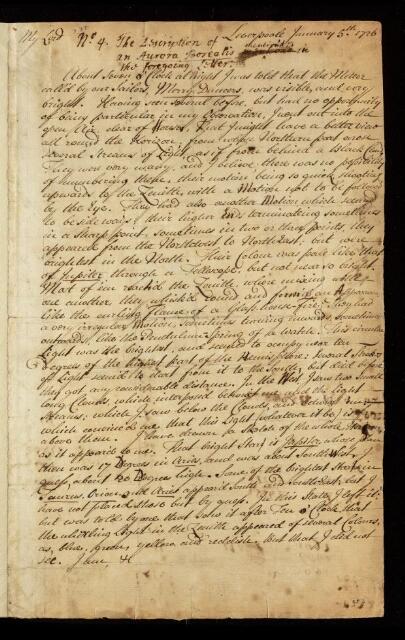 My Lord Leverpoole January 5th. 1726
No. 4. The Description of
an Aurora Borealis mention'd in
the foregoing Letter.
About Seven o'Clock at Night I was told that the Meteor
call'd by our Sailors, Merry Dancers, was visible, and very
bright. Having seen several before, but had no opportunity
of being particular in my Observation, I went out into the
open Air, clear of Houses, that I might have a better view
all round the Horizon; from whose Northern part arose
several Streams of Light, as if from behind a black Cloud.
They were very many, and I believe, there was no possibility
of numbering these, their motion being so quick shooting
upwards to the Zenith, with a Motion not to be follow'd
by the Eye. They had also another Motion which seem'd
to be sideways; their higher Ends terminating sometimes
in a sharp point, sometimes in two or three points, they
appeared from the Northwest to Northeast; but were
brightest in the North. Their Colour was pale like that
of Jupiter through a Telescope, but not near so bright.
Most of 'em reach'd the Zenith, where mixing with
one another they whirl'd round and forming an Appearance
like the curling flame of a Glass-house-fire; they had
a very irregular Motion, sometimes turning inwards, sometimes
outwards, like the Pendulum-Spring of a Watch. This circular
Light was the brightest, and seem'd to occupy near ten
Degrees of the highest part of the Hemisphere: several Streaks
of Light seem'd to dart from it to the South, but died before
they got any considerable distance. In the West I saw two small
long Clouds, which interposed between me and the Light
Streams; which I saw below the Clouds, and between 'em
which convinced me that this Light, (whatever it be) is
above them. I have drawn a Sketch of the whole
as it appeared to me. That bright Star is Jupiter, whose place
then was 17 Degrees in Aries, and was about Southwest,
guess, about 20 Degrees high. Some of the brightest Stars in
Taurus, Orion and Aries appear'd South and Southeast, but I
have not placed those but by guess. In this State I left it;
but was told by one that saw it after Ten o'Clock that
the whirling Light in the Zenith appeared of several Colours,
as, blue, green, yellow and reddish. But that I did not
see. I am &c